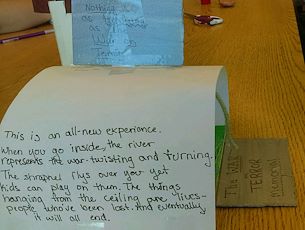 Nothing
as
as
War on
Terror
This is an all-new experience.
When you go inside, the river
represents the war-twisting and turning.
The shrapnel flys over your yet
kids can play on them. The things
hanging from the ceiling are lives-
people who've been lost. And eventually,
it will all end.
The WAR
TERROR
Memorial